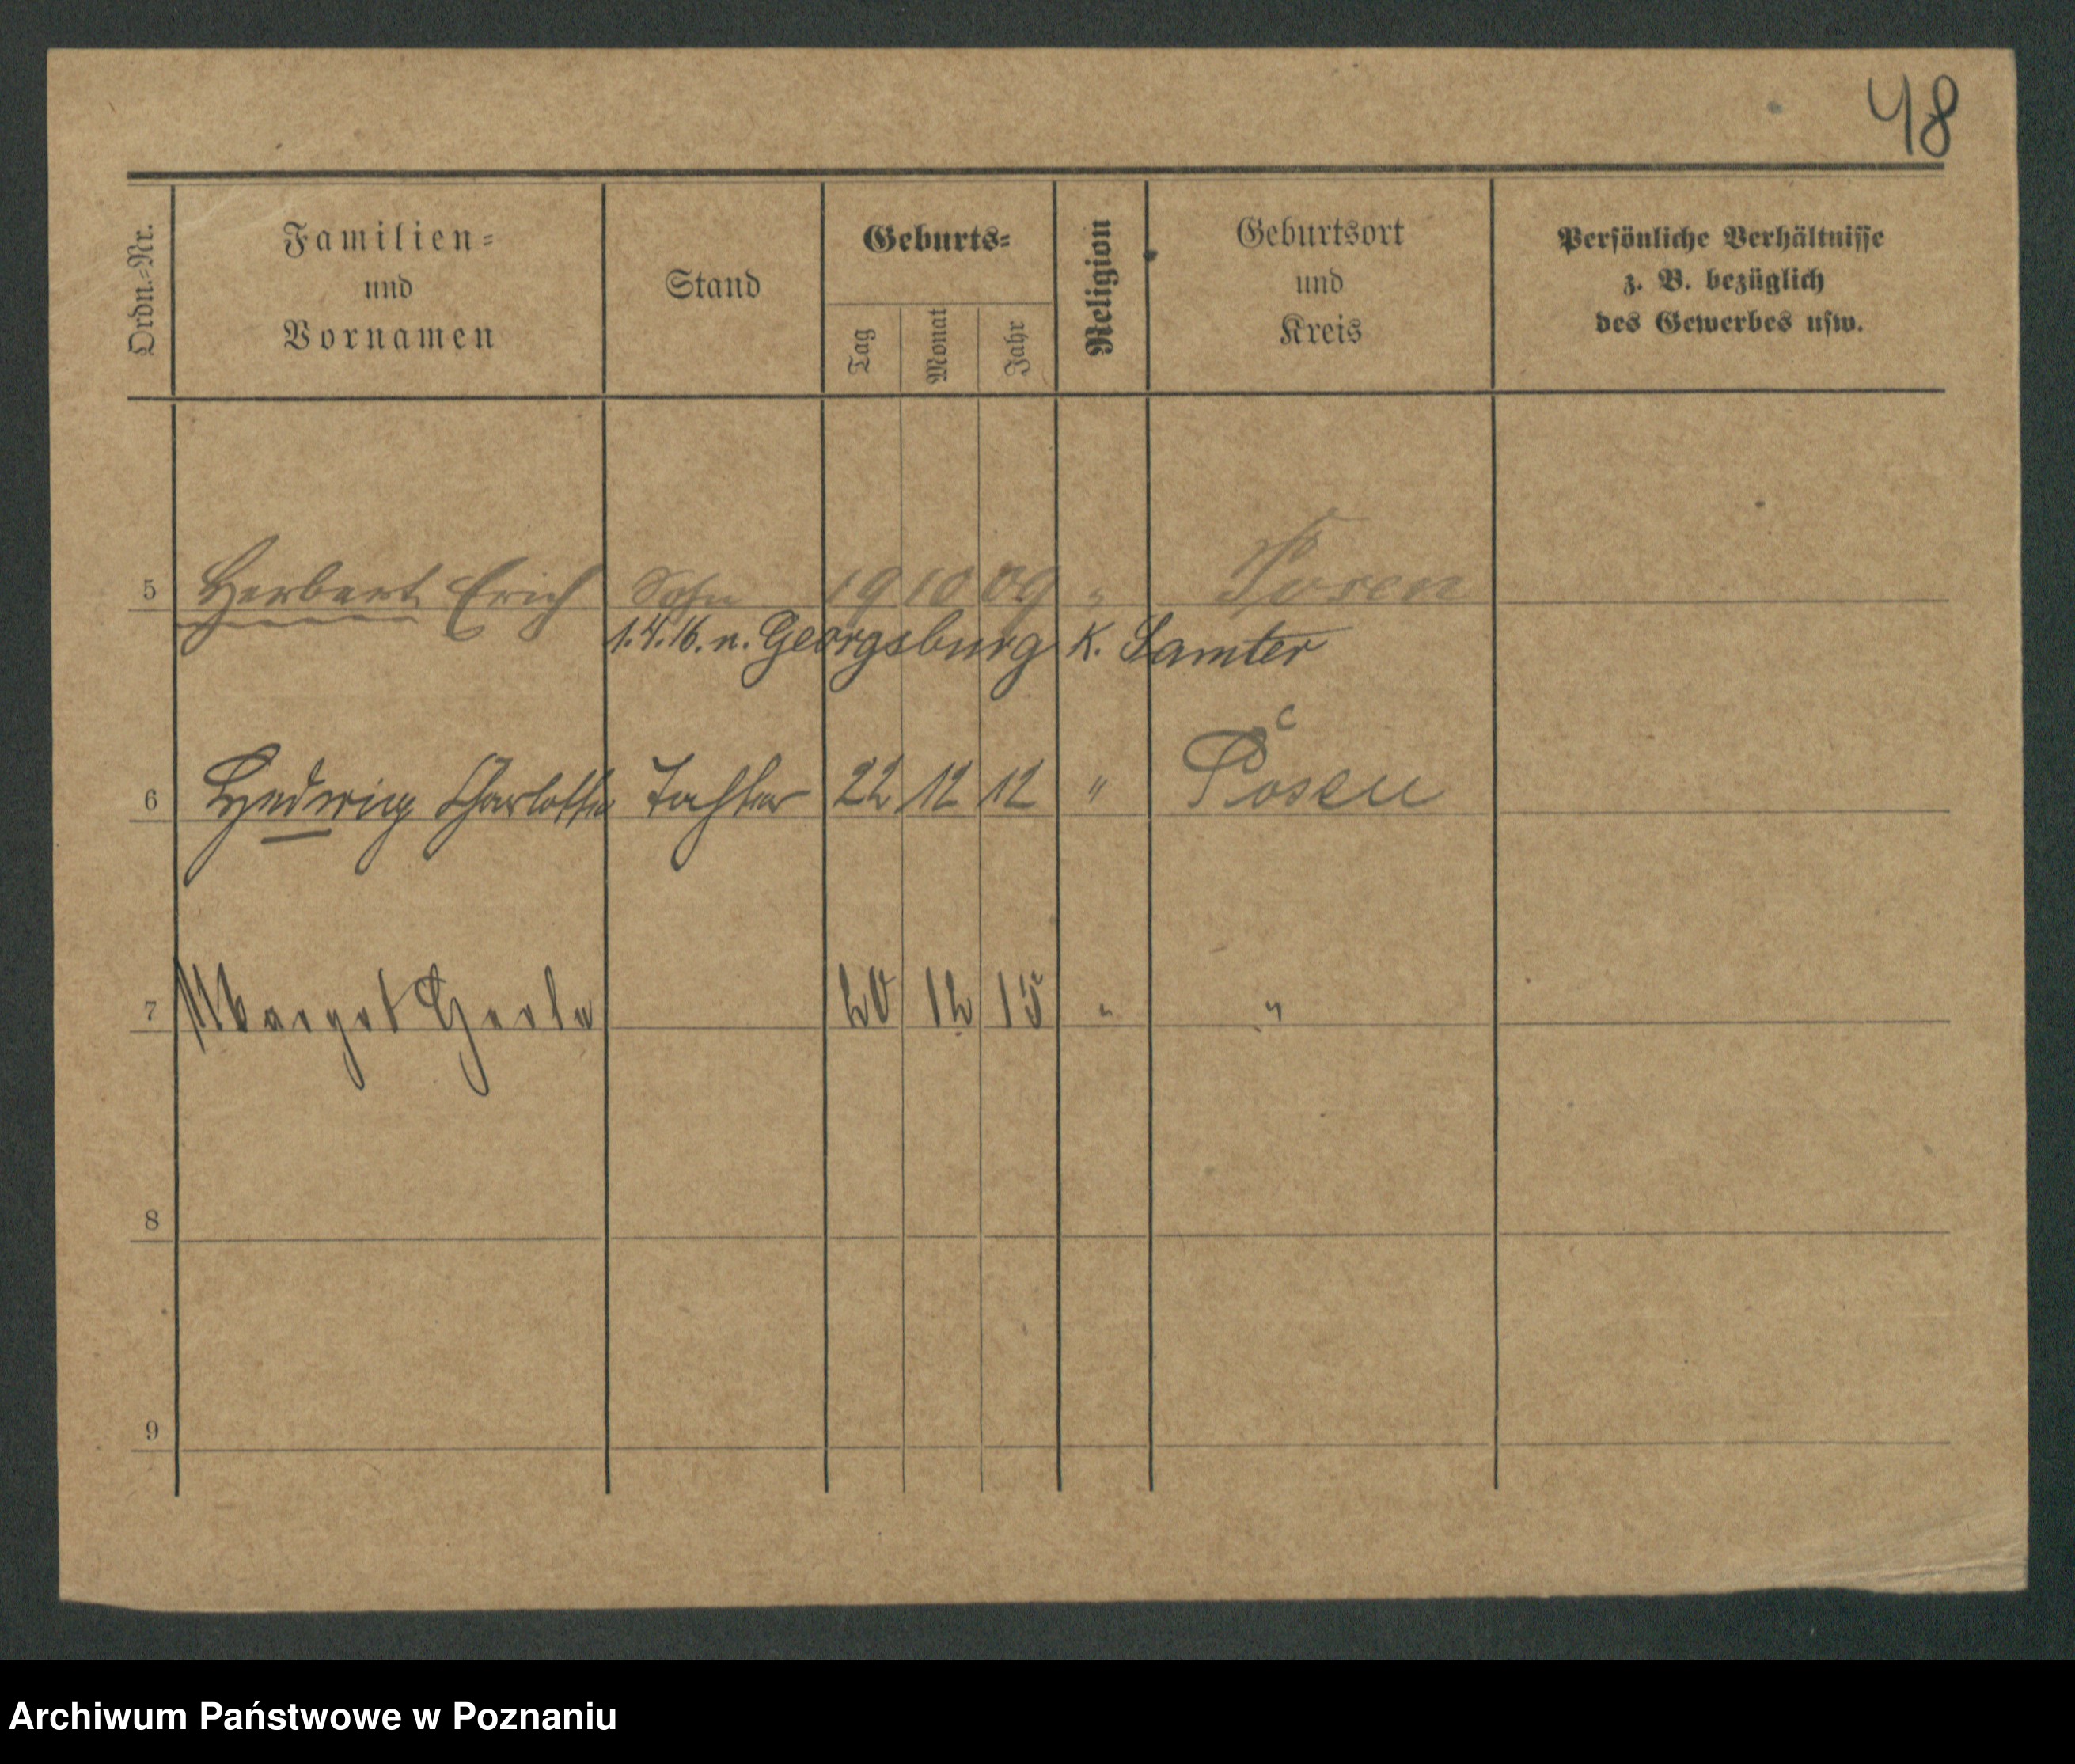 48
Ordn.-Nr.
Familien-
und
Vornamen
Stand
Geburts-
Tag
Monat
Jahr
Religion
Geburtsort
und
Kreis
Persönliche Verhältnisse
z. B. bezüglich
des Gewerbes usw.
5 Herbert Erich Sohn 19 10 09 " Posen
1.4.16. n. Georgsburg K. Samter
6 Hedwig Charlotte Tochter 22 12 12 " Posen
7 Margot Gerda 20 12 15 " "
8
9
Archiwum Państwowe w Poznaniu